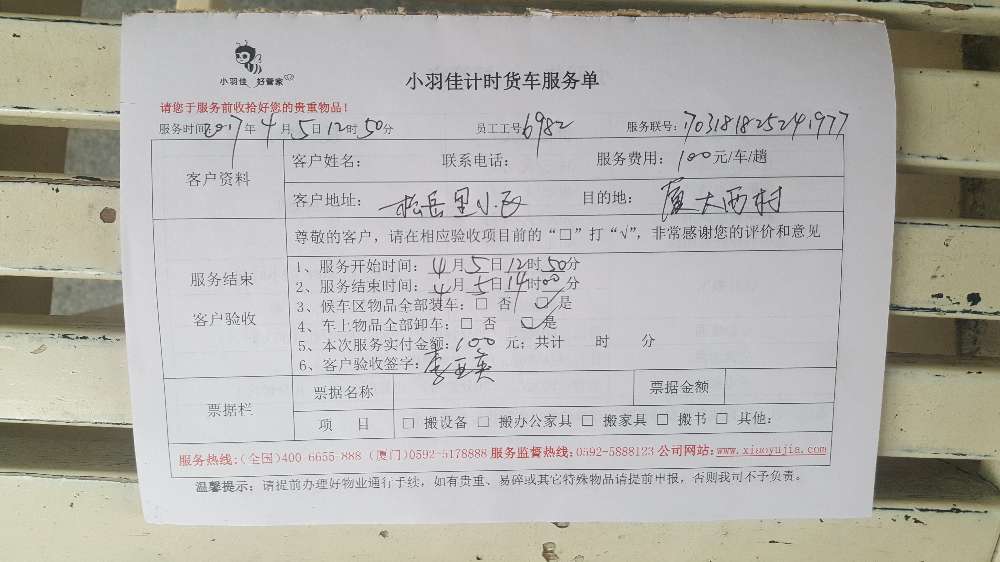 小羽佳 好管家
小羽佳计时货车服务单
请您于服务前收拾好您的贵重物品！
服务时间2017年4月5日12时50分 员工工号6982 服务联号：703181825241977
客户资料
客户姓名： 联系电话： 服务费用：100元/车/趟
客户地址：松岳里小区 目的地：厦大西村
尊敬的客户，请在相应验收项目前的“□”打“√”，非常感谢您的评价和意见
服务结束
客户验收
1、服务开始时间：4月5日12时50分
2、服务结束时间：4月5日14时00分
3、候车区物品全部装车：□ 否 ☑是
4、车上物品全部卸车：□ 否 ☑是
5、本次服务实付金额：100 元；共计 时 分
6、客户验收签字：李亚英
票据栏
票据名称 票据金额
项 目 □ 搬设备 □ 搬办公家具 □ 搬家具 □ 搬书 □ 其他：
服务热线：(全国)400-6655-888 (厦门)0592-5178888 服务监督热线：0592-5888123 公司网站：www.xiaoyujia.com
温馨提示：请提前办理好物业通行手续，如有贵重、易碎或其它特殊物品请提前申报，否则我司不予负责。